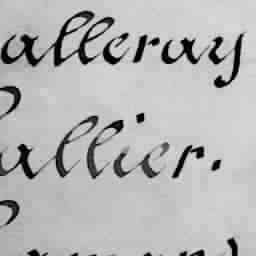 alleray
allier.